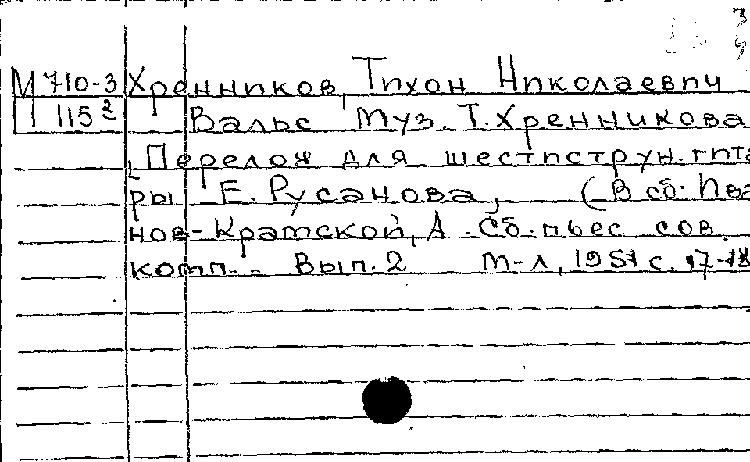 М 710-3 Хренников, Тихон Николаевич
115² Вальс Муз. Т. Хренникова
Перелож для шестиструн. гита
ры Е. Русанова, (В сб. Ива
нов-Крамской, А. Сб. пьес сов.
комп. Вып. 2 М-Л, 1951 с. 17-18